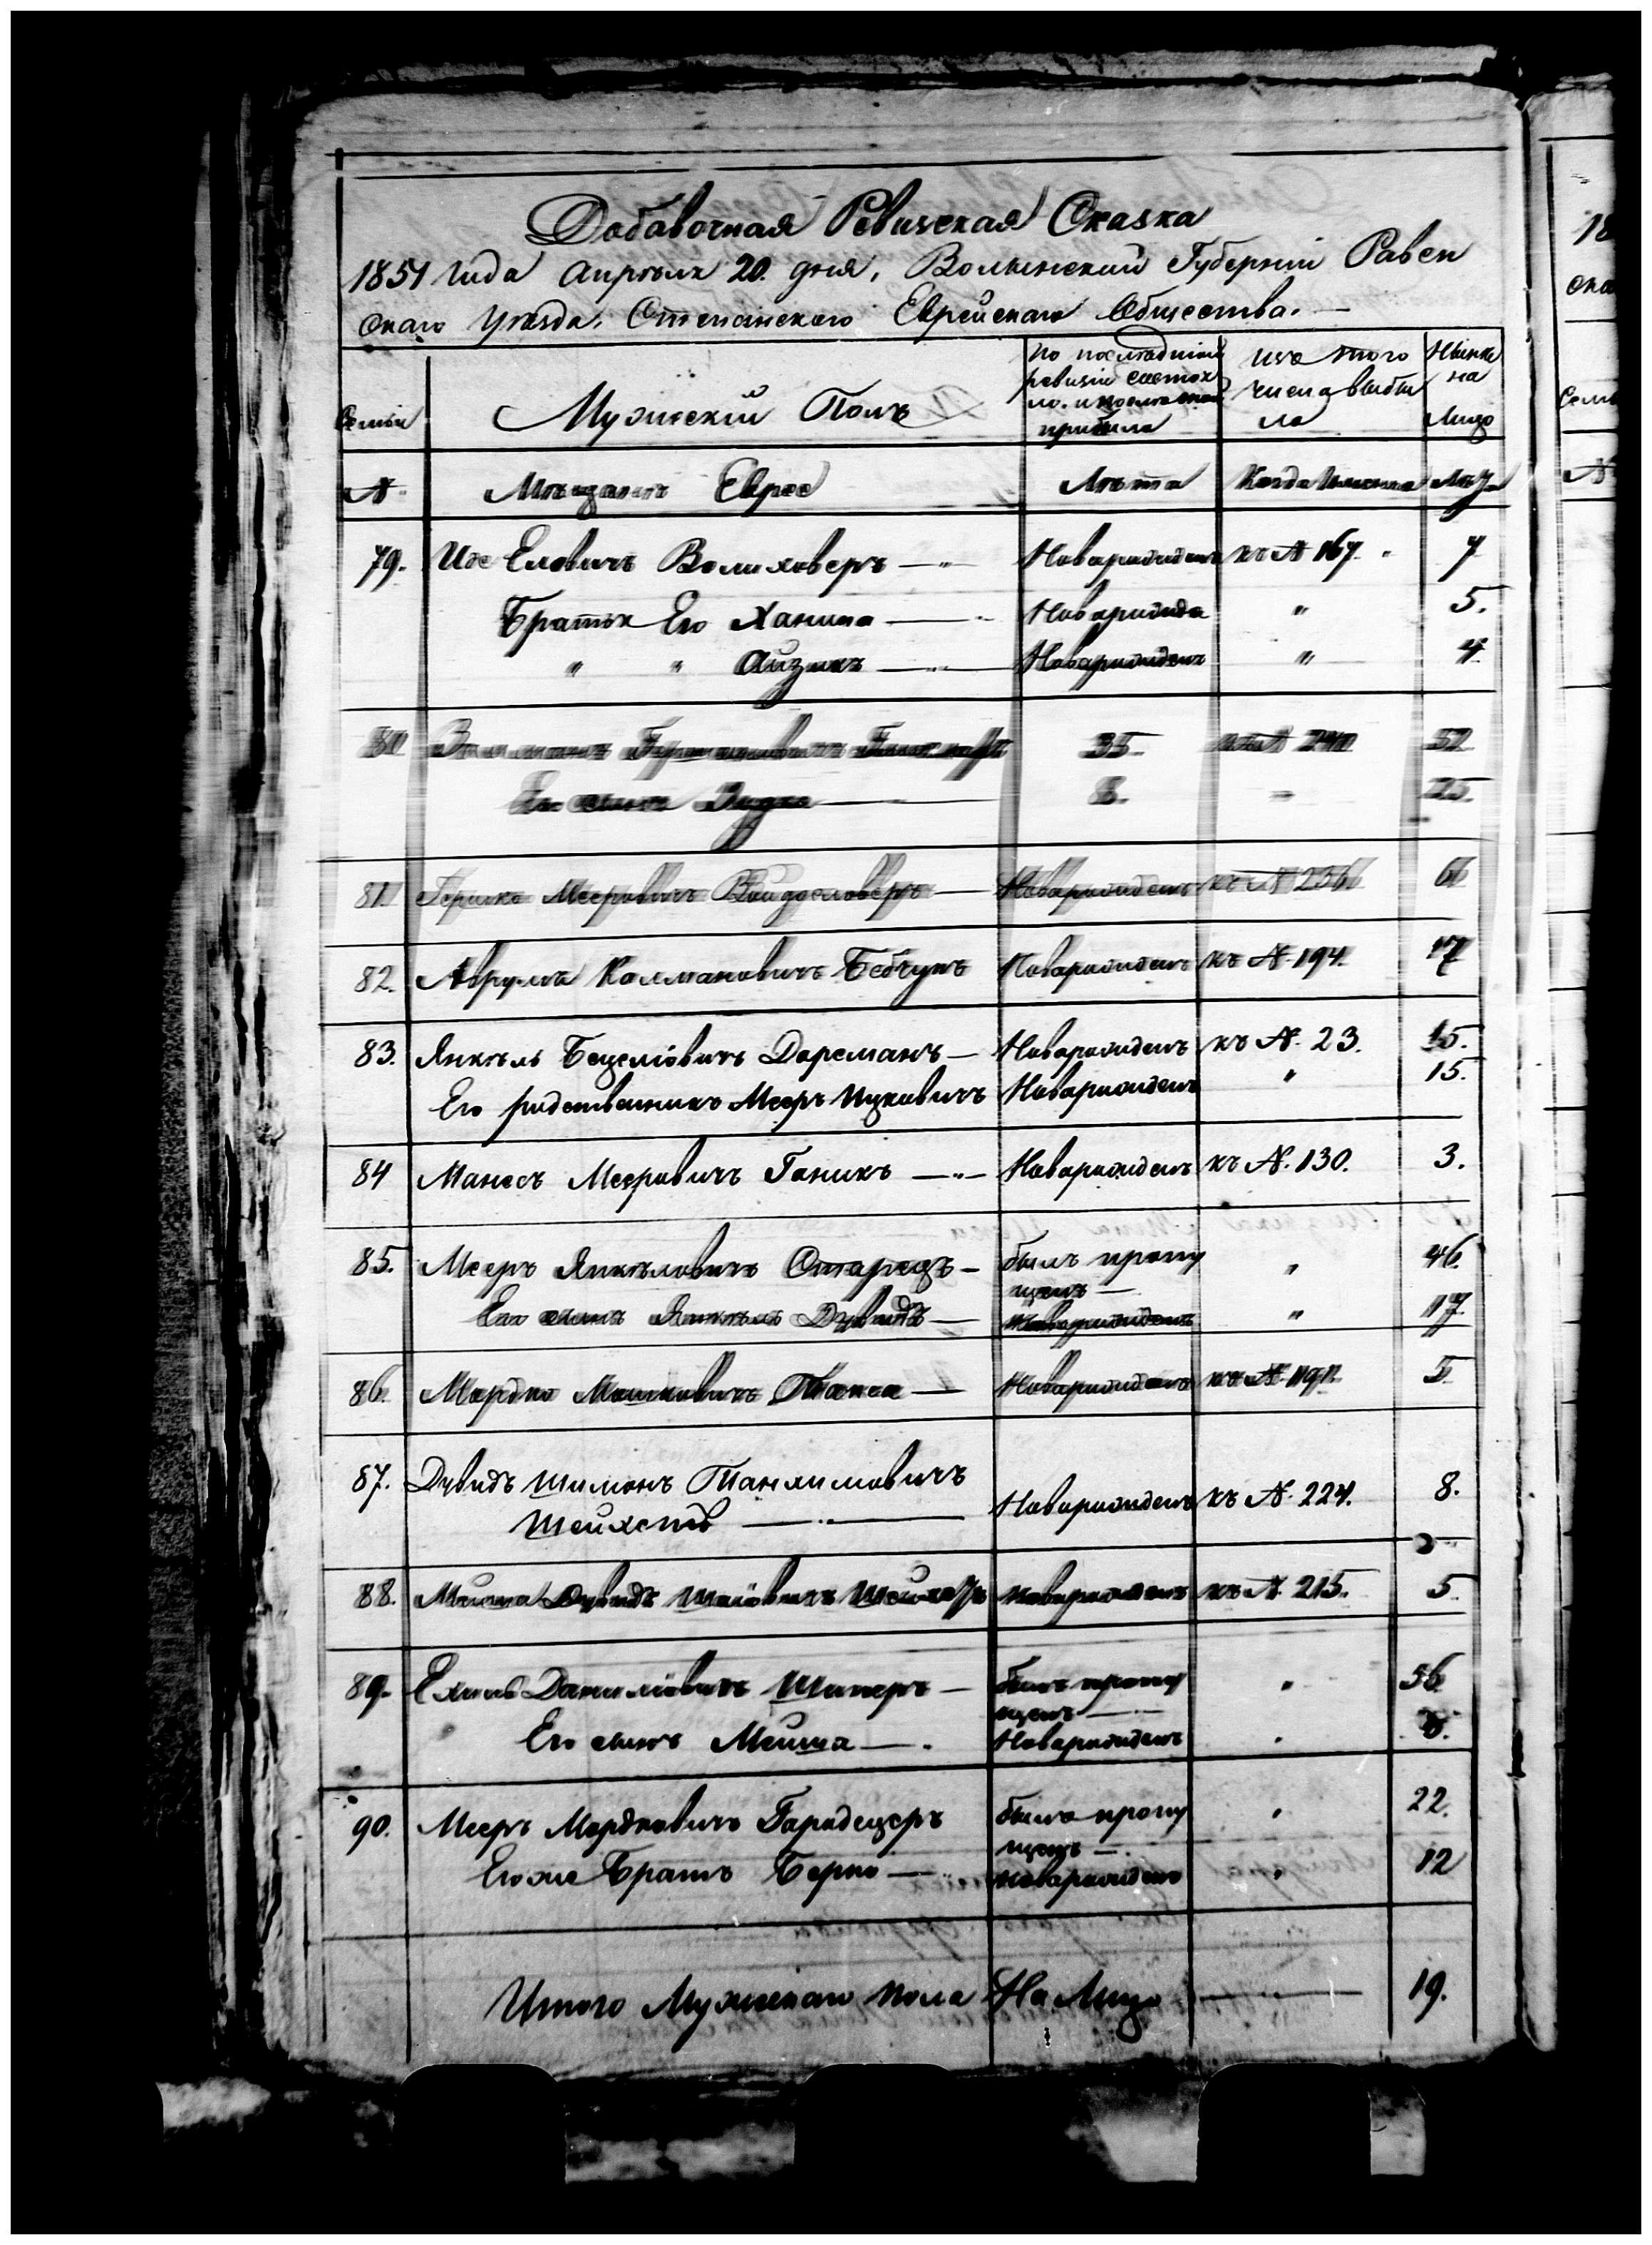 Добавочная Ревизская Сказка
1851 года апрѣля 20. дня, Волынской Губерніи Равен
скаго Уѣзда. Степанскаго Еврейскаго Общества. —
Семьи
Мужескій Полъ
по послѣдній
ревизіи состоя
ло. и послѣ того
прибыло
изъ того
числа выбы
ло
Нынѣ
на
Лицо
№ Мѣщане Евреи Лѣта Когда Именно Лѣт
79. Иос Еловичъ Волиховеръ — " — Новарожденъ къ № 167. 7
Братья Его Ханина — Новарожде " 5.
" " Айзикъ — Новарожденъ " 4
80 35. 52
Его сынъ 8. " 25.
81 Гершко Мееровичъ — Новарожденъ къ № 236 6
82. Аврумъ Калмановичъ Бебчукъ Новарожденъ къ № 194. 17
83. Янкель Бецелiовичъ Дорсманъ — Новарожденъ къ № 23. 15.
Его родственникъ Мееръ Ицковичъ Новарожденъ " 15.
84 Манесъ Мееровичъ Ганикъ — " — Новарожденъ къ № 130. 3.
85. Мееръ Янкеловичъ Старецъ — былъ пропу " 46.
щенъ —
Его сынъ Янкель Дувидъ — Новарожденъ " 17
86. Мордко Мошковичъ — Новарожденъ къ № 191. 5
87. Дувидъ Шимонъ Танхимовичъ
Шейхетъ — Новарожденъ къ № 224. 8.
88. Мейша Дувидъ Шаiовичъ Новарожденъ къ № 215. 5
89. Ехиль Данилiовичъ Шинеръ — былъ пропу " 56
щенъ —
Его сынъ Мейша — . Новарожденъ "
90. Мееръ Мордковичъ Гародецеръ былъ пропу " 22.
щенъ — .
Его же Братъ Берко — Новарожденъ " 12
Итого Мужескаго пола На Лицо — 19.